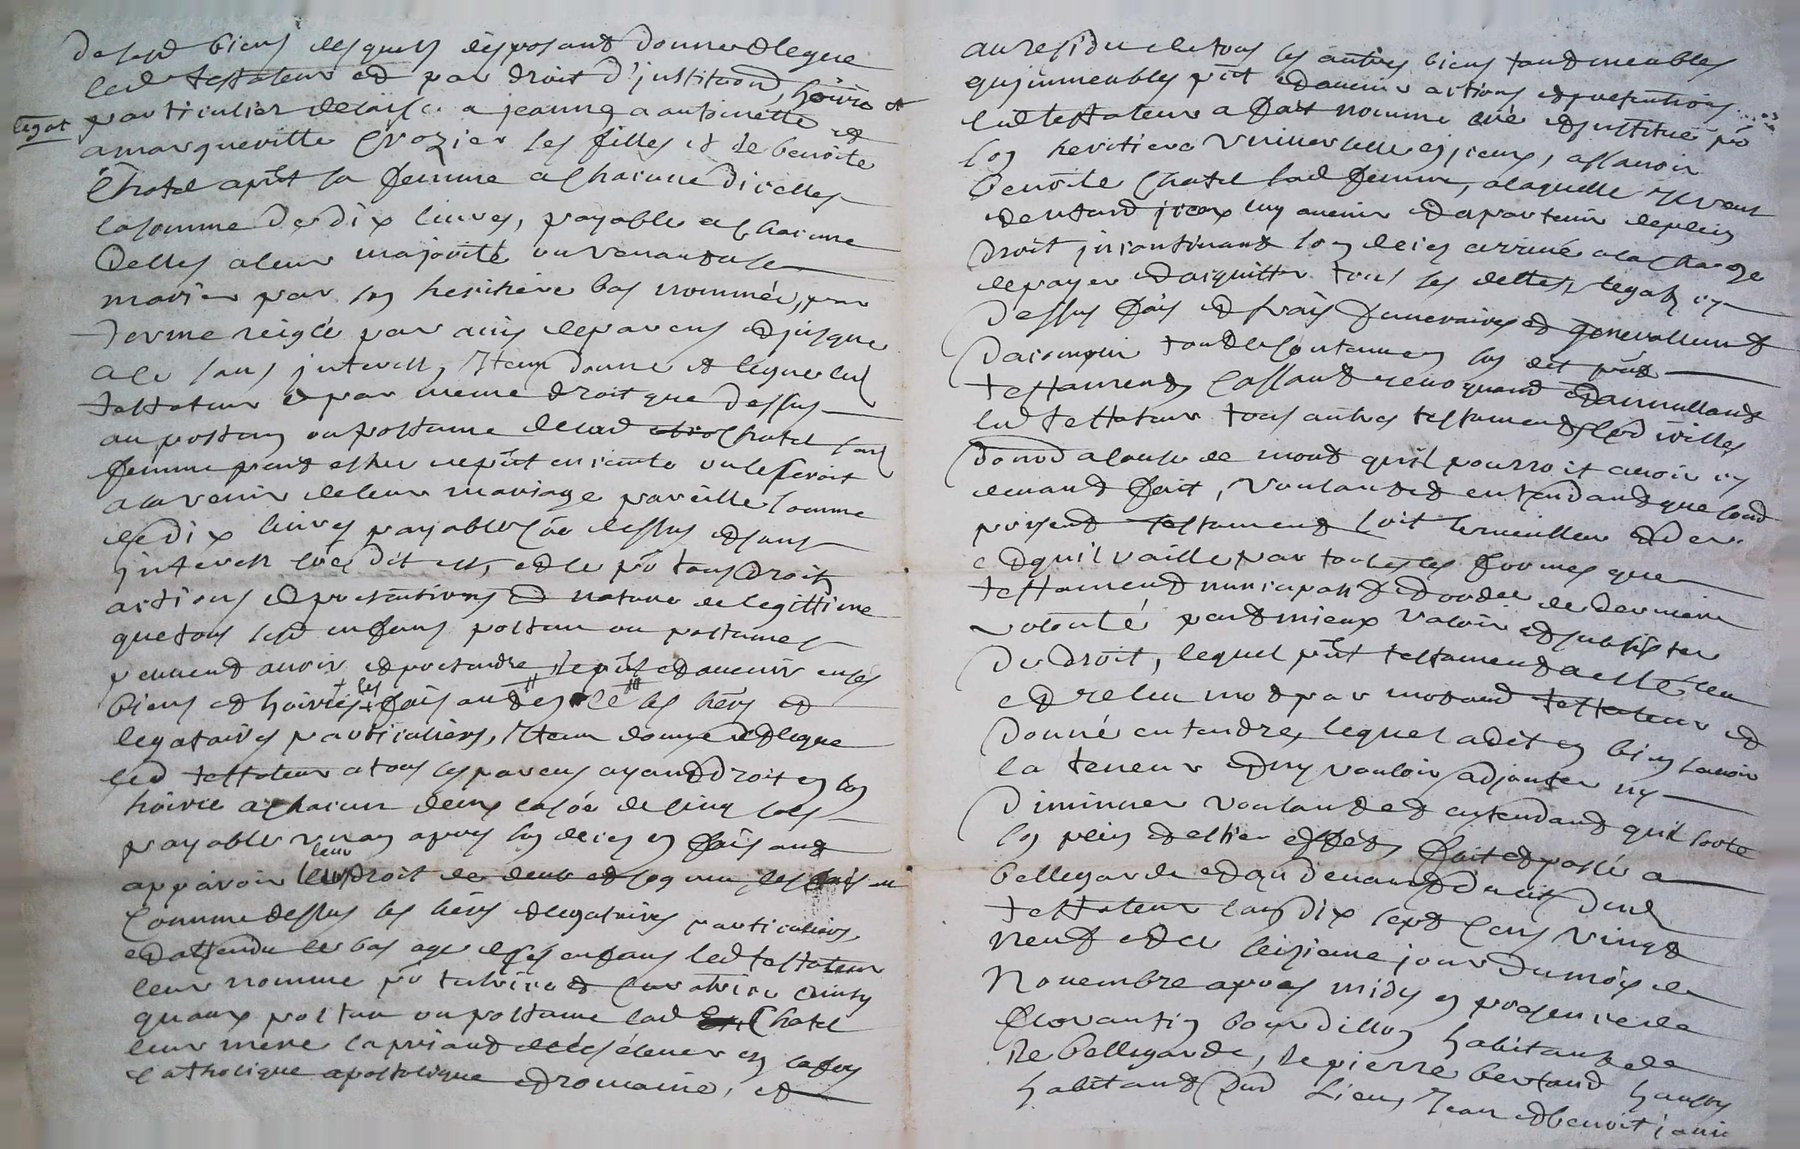 de sesd biens desquels disposant donne et legue
led testateur et par droit d'institution, hoirie et
legat
particulier delaisse a jeanne a antoinette et
a margueritte Crozier ses filles et de benoite
Chatel apnt sa femme a chacune dicelles
la somme de dix livres, payable a chacune
delles a leur majorité ou venant a se
marier par son heritiere bas nommée, par
terme reiglé par avis de parens et jusque
a ce sans interest, Item donne et legue led
testateur et par meme droit que dessus
au postum ou postume de lad Chatel sad
femme peut estre enceinte ou le seroit
a lavenir de leur mariage pareille somme
de dix livres payable cõe dessus et sans
interest cõe dit est, et ce pr tous droits
actions et pretentions et nature de legittime
que tous sesd enfans postum ou postumes
peuvent avoir et pretendre pnt et avenir en ses
biens et hoiries les faisant en ce ses hers et
legataires particuliers, Item donne et legue
led testateur a tous ses parens ayant droit en son
hoirie a chacun deux la sõe de cinq sols
payable un an apres son deces en faisant
apparoir leur droit
comme dessus ses hers et legataires particuliers,
et attendu le bas age de ses enfans led testateur
leur nomme pr tutrice et curatrice
quaux postum ou postume lad Chatel
leur mere la priant de les élever en la foy
catholique apostolique et romaine, et
au residu de tous ses autres biens tant meubles
quimmeubles pnt et avenir actions et pretentions
led testateur a fait nommé créé et institué pr
son heritiere universelle en iceux, assavoir
benoite Chatel sad femme, a laquelle il veut
et entend iceux luy avenir et apartenir de plein
droit incontinant son deces arrivé a la charge
de payer et acquitter tous ses dettes, legats cy
dessus fais et frais funeraires et generallement
daccomplir tout le contenu en son dit pnt
testament, Cassant revoquant et annullant
led testateur tous autres testaments, codicilles
donnõ a cause de mort quil pourroit avoir cy
devant fait, voulant et entendant que son
present testament soit le meilleur et der
et quil vaille par toutes les formes que
testament nuncupatif et ordce de derniere
volonté peut mieux valoir et subsister
de droit, lequel pnt testament a esté leu
et releu mot par mot aud testateur et
donné entendre, lequel a dit en bien savoir
la teneur et ny vouloir adjouter ny
diminuer voulant et entendant quil sorte
son plein et entier effet, fait et passé a
bellegarde et au devant du dud
testateur lan dix sept cens vingt
neuf et le seizieme jour du mois de
Novembre apres midy en presence de
florantin bourdillon habitant de
de bellegarde, de pierre bertaud
habitant dud Lieu, Jean et benoit